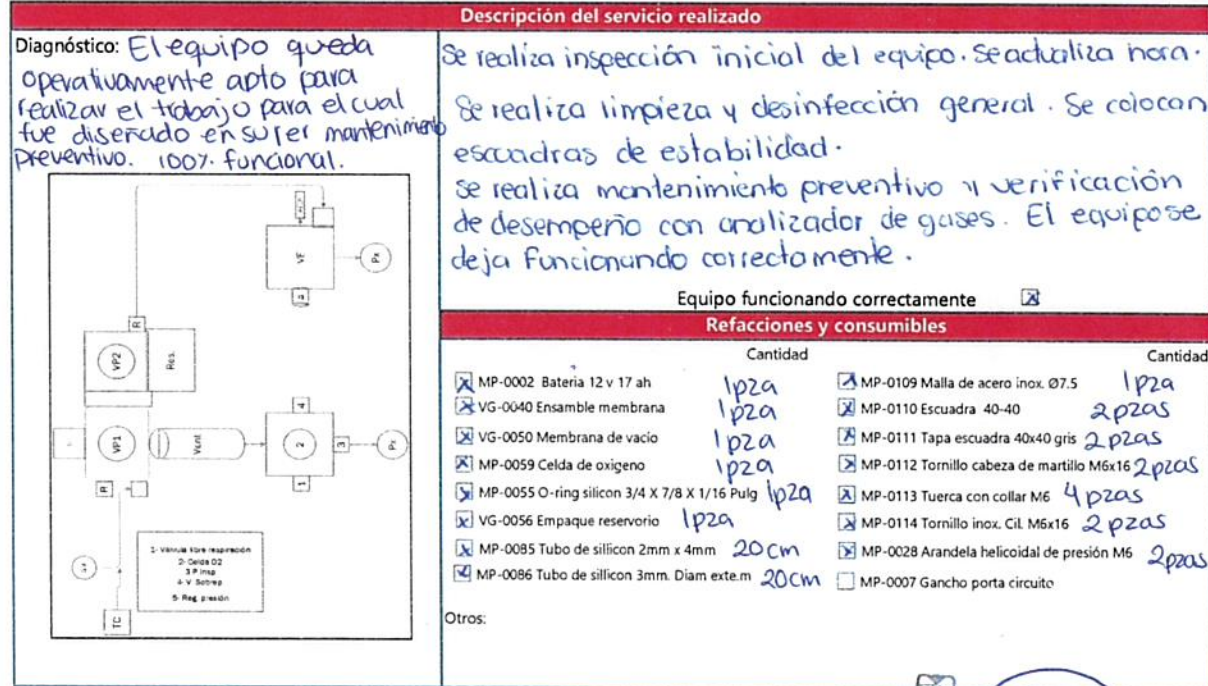 Descripción del servicio realizado
Diagnóstico: El equipo queda
operativamente apto para
realizar el trabajo para el cual
fue diseñado en su 1er mantenimiento
preventivo. 100% funcional.
VE
Px
VP2
Res.
R
VP1
Vent
4
2
1
3
Px
R
TC
1- Válvula libre respiración
2- Celda O2
3 P insp
4- V. Sobrep
5- Reg. presión
Se realiza inspección inicial del equipo. Se actualiza hora.
Se realiza limpieza y desinfección general. Se colocan
escuadras de estabilidad.
se realiza mantenimiento preventivo y verificación
de desempeño con analizador de gases. El equipo se
deja funcionando correctamente.
Equipo funcionando correctamente
Refacciones y consumibles
Cantidad
MP-0002 Bateria 12 v 17 ah 1pza
VG-0040 Ensamble membrana 1pza
VG-0050 Membrana de vacio 1pza
MP-0059 Celda de oxigeno 1pza
MP-0055 O-ring silicon 3/4 X 7/8 X 1/16 Pulg 1pza
VG-0056 Empaque reservorio 1pza
MP-0085 Tubo de sillicon 2mm x 4mm 20cm
MP-0086 Tubo de sillicon 3mm. Diam exte.m 20cm
Cantidad
MP-0109 Malla de acero inox. Ø7.5 1pza
MP-0110 Escuadra 40-40 2pzas
MP-0111 Tapa escuadra 40x40 gris 2pzas
MP-0112 Tornillo cabeza de martillo M6x16 2pzas
MP-0113 Tuerca con collar M6 4pzas
MP-0114 Tornillo inox. Cil. M6x16 2pzas
MP-0028 Arandela helicoidal de presión M6 2pzas
MP-0007 Gancho porta circuito
Otros: